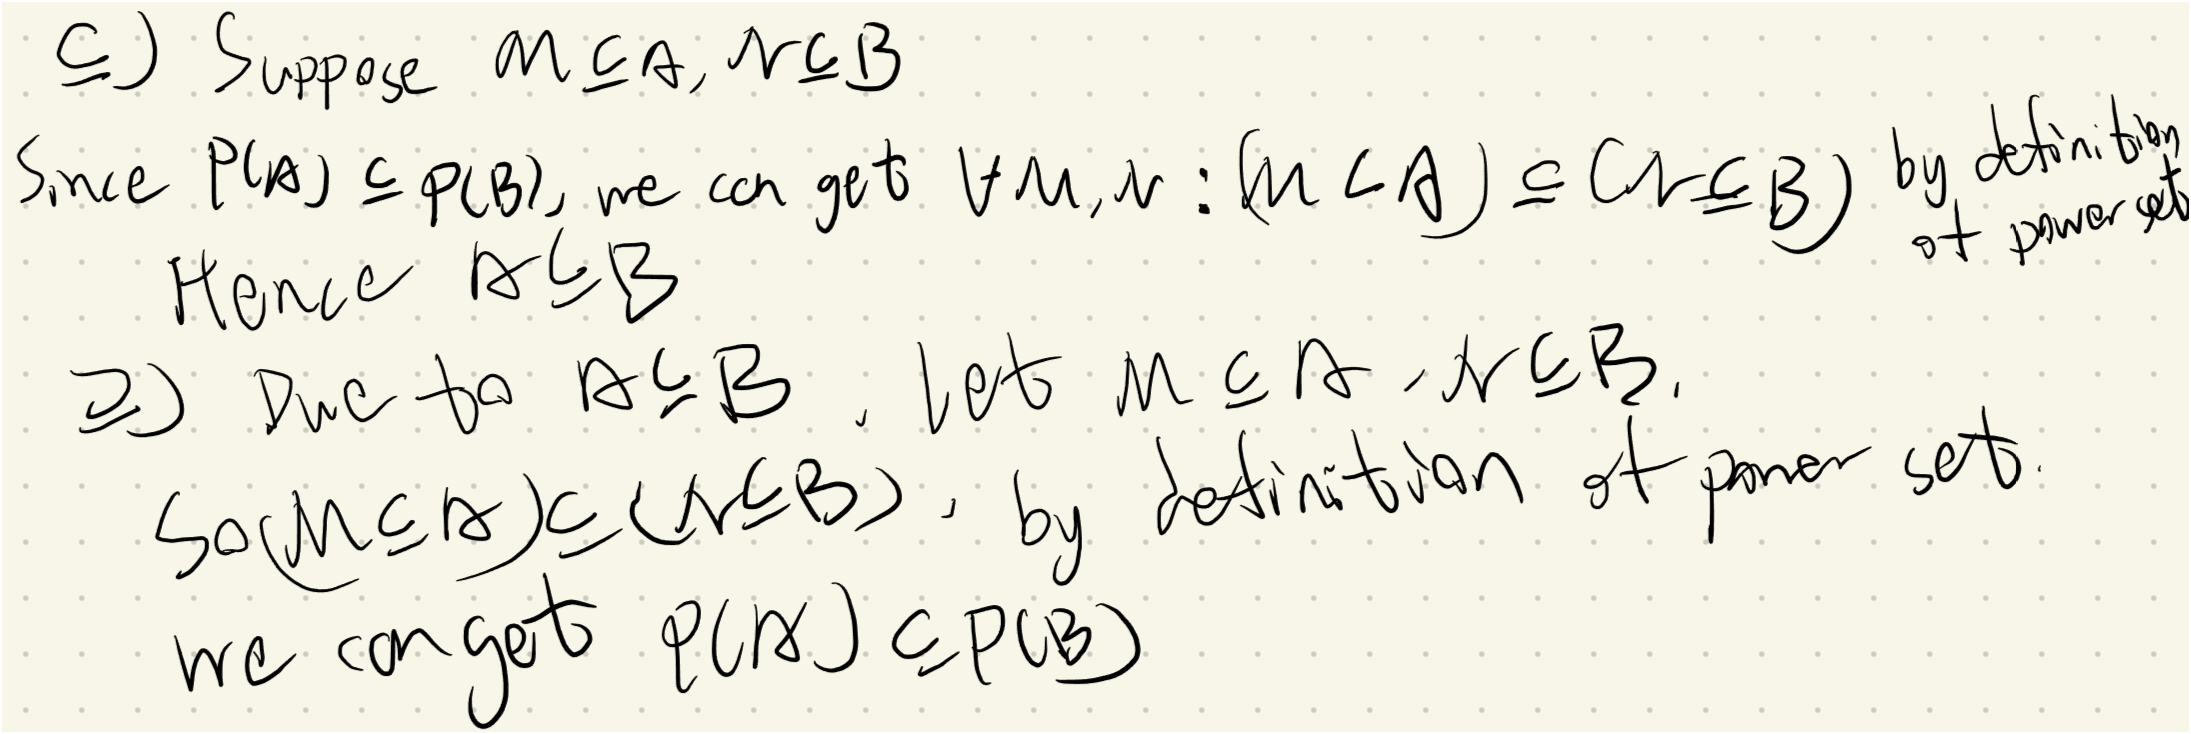 ⊆) Suppose M⊆A, N⊆B
Since P(A) ⊆ P(B), we can get ∀M,N : (M ⊂ A) ⊆ (N⊆B) by definition of power set
Hence A⊆B
⊇) Due to A⊆B , let M ⊆ A , N⊆B,
So(M⊆A)⊆(N⊆B), by definition of power set.
we can get P(A) ⊆P(B)